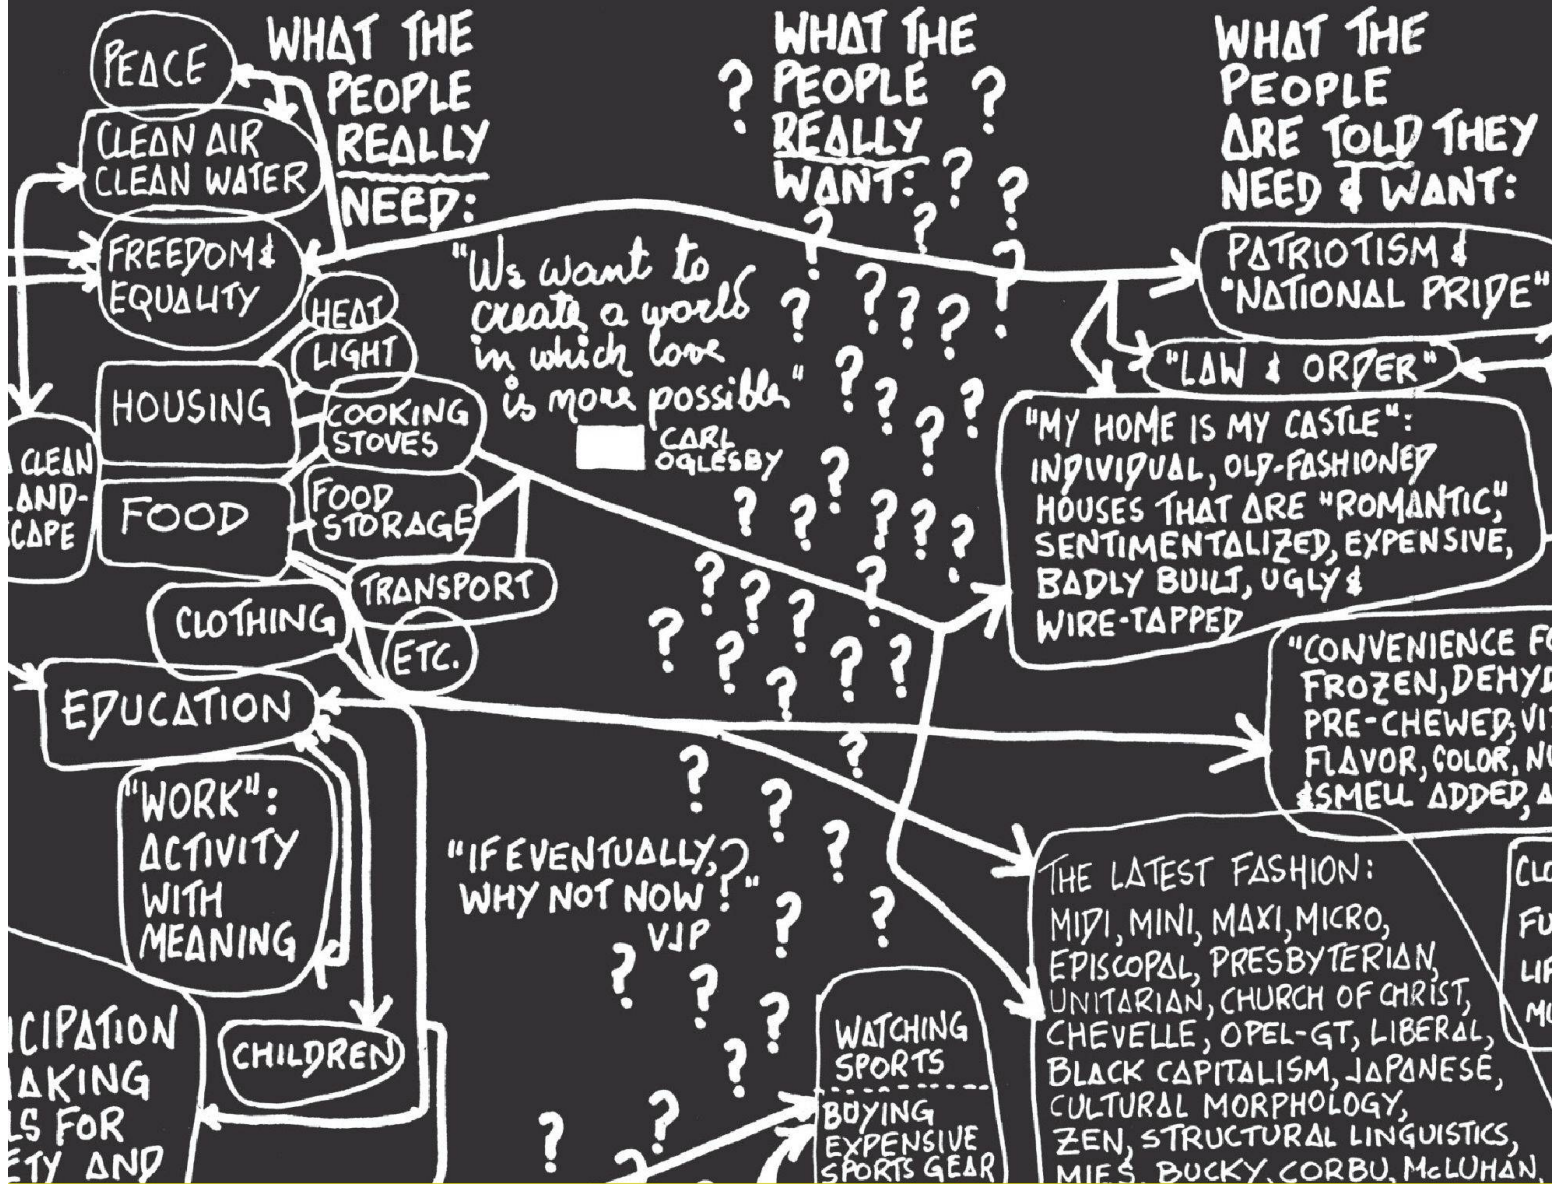 PEACE
CLEAN AIR
CLEAN WATER
FREEDOM &
EQUALITY
HEAT
LIGHT
HOUSING
COOKING
STOVES
CLEAN
FOOD
FOOD
STORAGE
TRANSPORT
CLOTHING
ETC.
EDUCATION
"WORK":
ACTIVITY
WITH
MEANING
CHILDREN
CIPATION
AKING
LS FOR
ETY AND
WHAT THE
PEOPLE
REALLY
NEED:
"We want to
create a world
in which love
is more possible"
CARL
OGLESBY
"IF EVENTUALLY,
WHY NOT NOW?"
VJP
WHAT THE
PEOPLE
REALLY
WANT:
? ? ? ? ? ? ? ? ? ? ? ? ? ? ? ? ? ? ? ? ? ? ? ? ? ? ? ? ? ? ? ? ? ? ? ? ? ? ? ? ? ? ? ? ? ? ? ?
WATCHING
SPORTS
BUYING
EXPENSIVE
SPORTS GEAR
WHAT THE
PEOPLE
ARE TOLD THEY
NEED & WANT:
PATRIOTISM &
"NATIONAL PRIDE"
"LAW & ORDER"
"MY HOME IS MY CASTLE":
INDIVIDUAL, OLD-FASHIONED
HOUSES THAT ARE "ROMANTIC",
SENTIMENTALIZED, EXPENSIVE,
BADLY BUILT, UGLY &
WIRE-TAPPED
"CONVENIENCE FO
FROZEN, DEHYD
PRE-CHEWED, VIT
FLAVOR, COLOR, NU
& SMELL ADDED, A
THE LATEST FASHION:
MIDI, MINI, MAXI, MICRO,
EPISCOPAL, PRESBYTERIAN,
UNITARIAN, CHURCH OF CHRIST,
CHEVELLE, OPEL-GT, LIBERAL,
BLACK CAPITALISM, JAPANESE,
CULTURAL MORPHOLOGY,
ZEN, STRUCTURAL LINGUISTICS,
MIES, BUCKY, CORBU, McLUHAN,
CLO
FU
LIF
MU